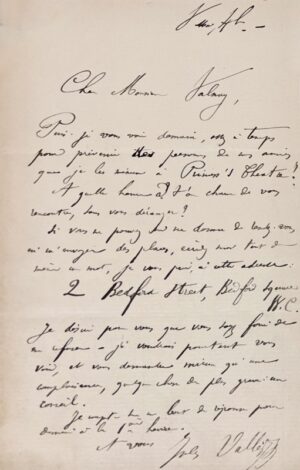 Cher Monsieur Valavy,
Puis-je vous voir demain, assez à temps
pour prévenir des personnes de mes amis
que je les mène à Princess's Theatre?
A quelle heure ai-je chance de vous
rencontrer, sans vous déranger?
Si vous ne pouvez me donner de rendez-vous
ni m'envoyer des places, écrivez moi tout de
même un mot, je vous prie, à cette adresse:
2 Bedford Street, Bedford Square
W.C.
Je désire pour vous que vous soyez forcé de
me refuser - je voudrais pourtant vous
voir, et vous demander mieux qu'une
complaisance, quelque chose de plus grave: un
conseil.
Je compte sur un bout de réponse pour
demain à la 1ère heure.
A vous
Jules Vallès